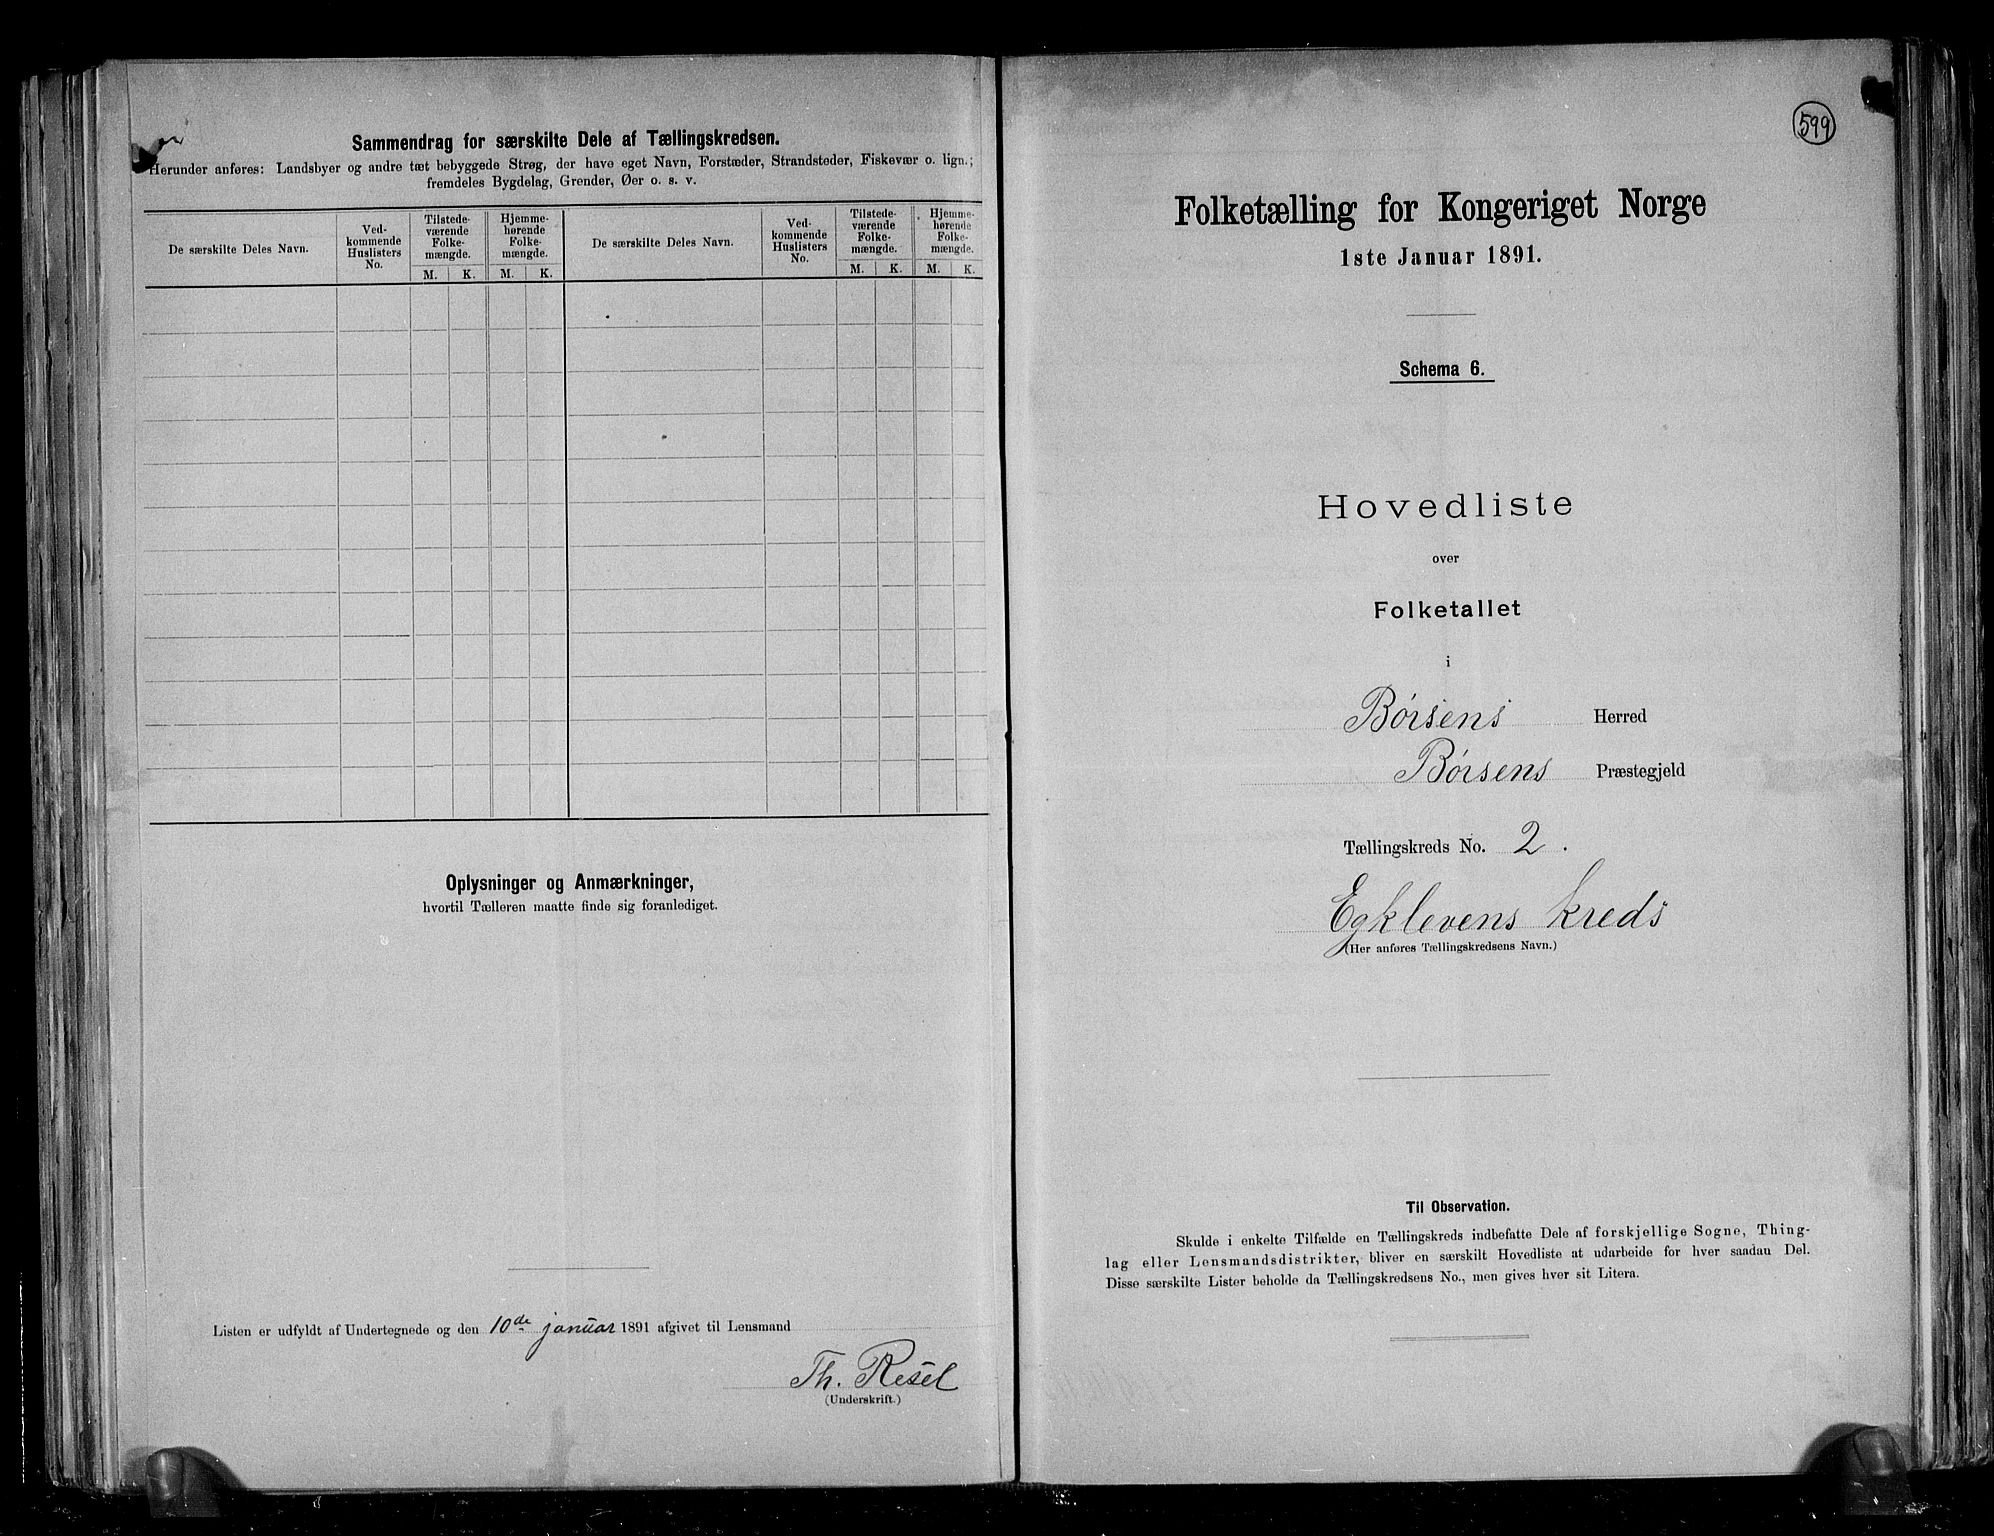 Sammendrag for særskilte Dele af Tællingskredsen.
Herunder anføres: Landsbyer og andre tæt bebyggede Strøg, der have eget Navn, Forstæder, Strandsteder, Fiskevær o. lign.;
fremdeles Bygdelag, Grender, Øer o. s. v.
De særskilte Deles Navn.
Ved-
kommende
Huslisters
No.
Tilstede-
værende
Folke-
mængde.
Hjemme-
hørende
Folke-
mængde.
M. K. M. K.
De særskilte Deles Navn.
Ved-
kommende
Huslisters
No.
Tilstede-
værende
Folke-
mængde.
Hjemme-
hørende
Folke-
mængde.
M. K. M. K.
Oplysninger og Anmærkninger,
hvortil Tælleren maatte finde sig foranlediget.
Listen er udfyldt af Undertegnede og den 10de januar 1891 afgivet til Lensmand
Th. Resel
(Underskrift.)
599
Folketælling for Kongeriget Norge
1ste Januar 1891.
Schema 6.
Hovedliste
over
Folketallet
i
Børsens Herred
Børsens Præstegjeld
Tællingskreds No. 2.
Egklevens kreds
(Her anføres Tællingskredsens Navn.)
Til Observation.
Skulde i enkelte Tilfælde en Tællingskreds indbefatte Dele af forskjellige Sogne, Thing-
lag eller Lensmandsdistrikter, bliver en særskilt Hovedliste at udarbeide for hver saadau Del.
Disse særskilte Lister beholde da Tællingskredsens No., men gives hver sit Litera.